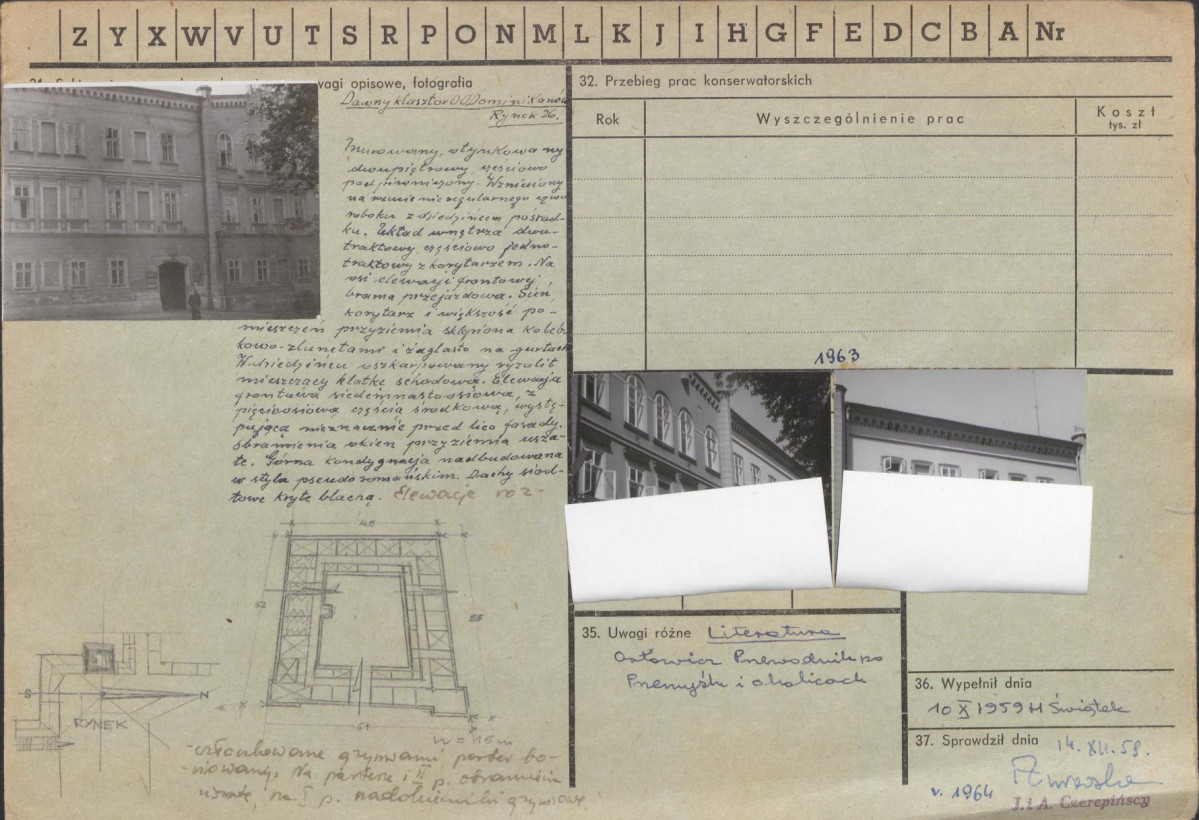 Z Y X W V U T S R P O N M L K J I H G F E D C B A Nr
uwagi opisowe, fotografia
Dawny klasztor OO Dominikanów
Rynek 26.
Murowany, otynkowany
dwupiętrowy, częściowo
podpiwniczony. Wzniesiony
na rzucie nieregularnego czwo
roboku z dziedzińcem pośrod-
ku. Układ wnętrza dwu-
traktowy częściowo jedno-
traktowy z korytarzem. Na
osi elewacji frontowej
brama przejazdowa. Sień,
korytarz i większość po-
mieszczeń przyziemia sklepiona koleb
kowo-z lunetami i żaglasto na gurtach
W dziedzińcu oszkarpowany ryzalit
mieszczący klatkę schodową. Elewacja
frontowa siedemnastoosiowa, z
pięcioosiową częścią środkową, wystę-
pującą nieznacznie przed lico fasady.
obramienia okien przyziemia usza-
te. Górna kondygnacja nadbudowana
w stylu pseudoromańskim. Dachy siod-
łowe kryte blachą. Elewacje roz-
48
52
55
61
h = 15 m
S N
RYNEK
-członkowane gzymsami, parter bo-
niowany. Na parterze i II p. obramienia
uszate, na I p. nadokienniki gzymsowe.
32. Przebieg prac konserwatorskich
Rok Wyszczególnienie prac Koszt
tys. zł
1963
35. Uwagi różne Literatura
Orłowicz Przewodnik po
Przemyślu i okolicach
36. Wypełnił dnia
10 X 1959 H Świątek
37. Sprawdził dnia 14. XII. 59.
v. 1964
J. i A. Czerepińscy